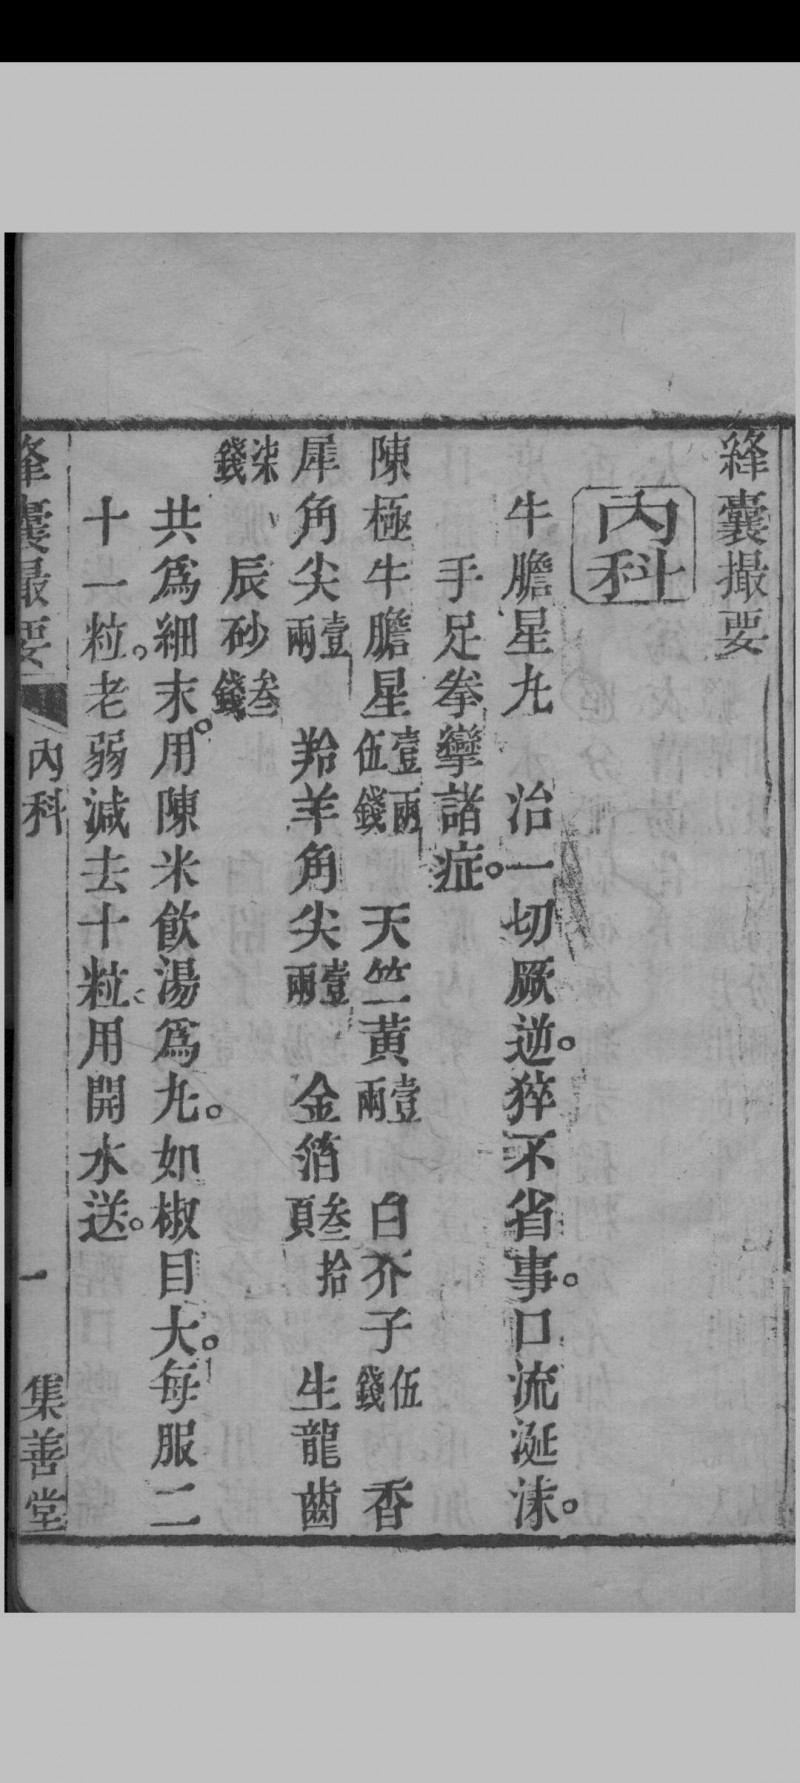 絳囊撮要
內科
牛膽星丸　治一切厥逆。猝不省事。口流涎沫。
手足拳攣諸症。
陳極牛膽星壹兩伍錢　天竺黃壹兩　白芥子伍錢　香
犀角尖壹兩　羚羊角尖壹兩　金箔叁拾頁　生龍齒
柒錢　辰砂叁錢
共爲細末。用陳米飲湯爲丸。如椒目大。每服二
十一粒。老弱減去十粒。用開水送。
絳囊撮要　內科　一　集善堂